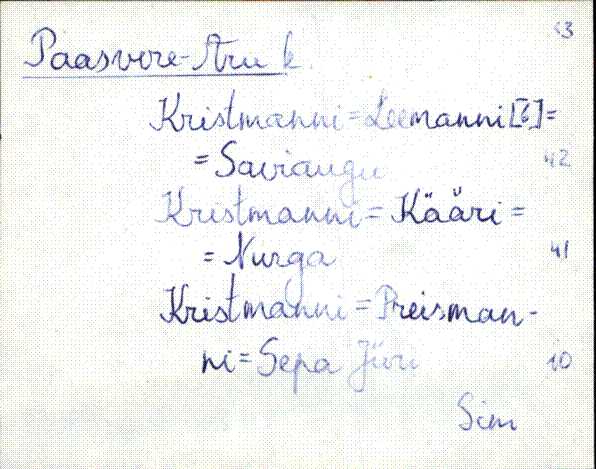 53
Paasvere-Aru k.
Kristmanni=Leemanni[?]=
=Saviaugu 42
Kristmanni=Kääri=
=Nurga 41
Kristmanni=Preisman-
ni=Sepa Jüri 10
Sim